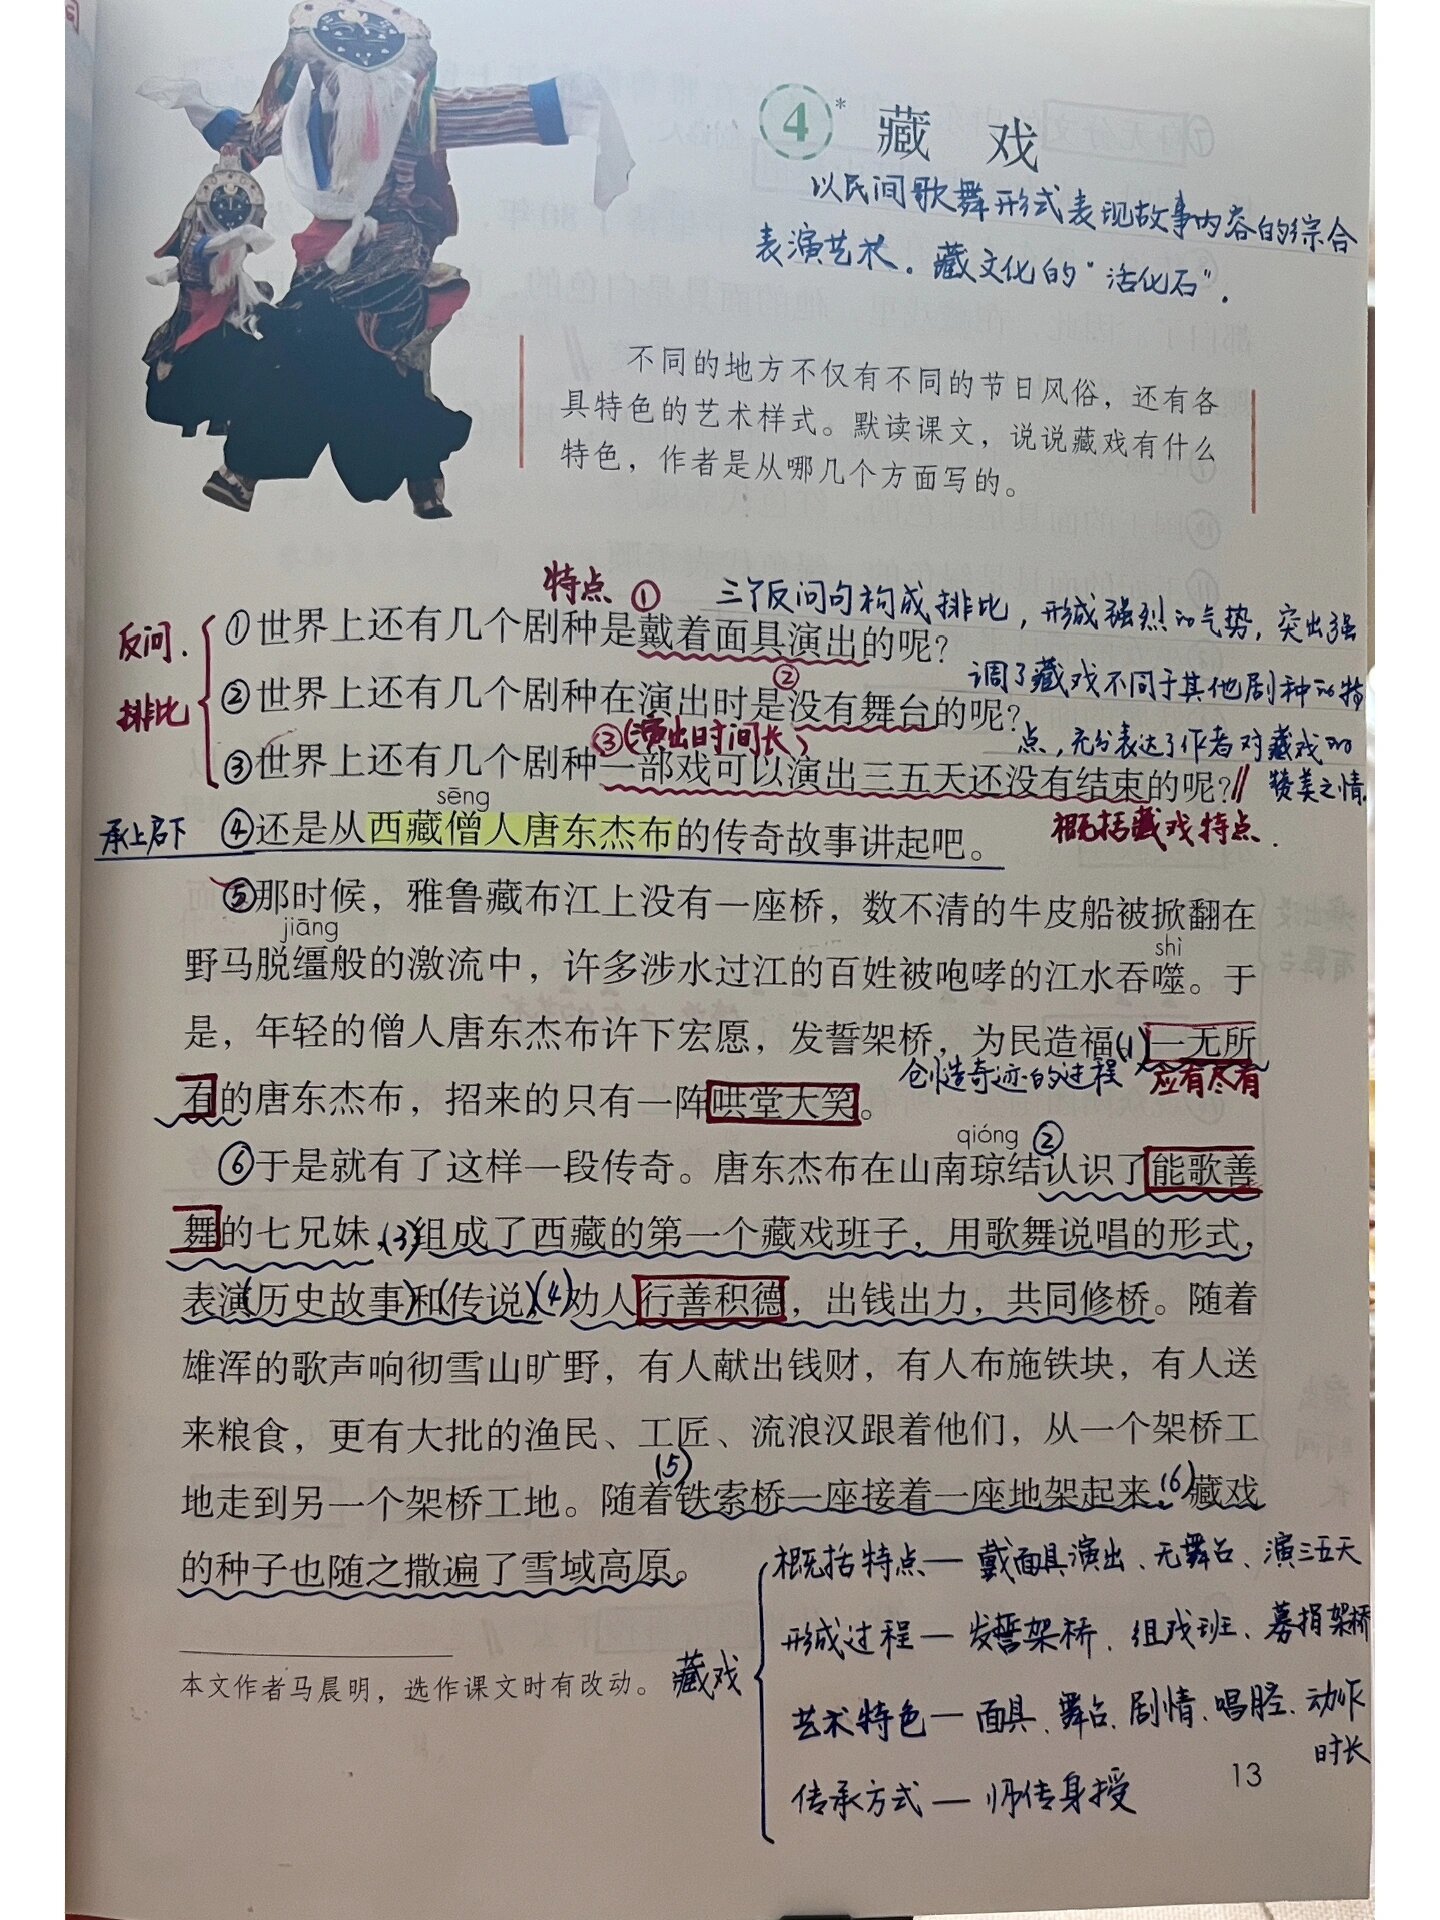 4* 藏 戏
以民间歌舞形式表现故事内容的综合
表演艺术。藏文化的“活化石”.
不同的地方不仅有不同的节日风俗，还有各
具特色的艺术样式。默读课文，说说藏戏有什么
特色，作者是从哪几个方面写的。
特点 ① 三个反问句构成排比，形成强烈的气势，突出强
反问.
①世界上还有几个剧种是戴着面具演出的呢？
② 调了藏戏不同于其他剧种的特
排比
②世界上还有几个剧种在演出时是没有舞台的呢？
③(演出时间长) 点，充分表达了作者对藏戏的
③世界上还有几个剧种一部戏可以演出三五天还没有结束的呢？// 赞美之情.
sēng
承上启下 ④还是从西藏僧人唐东杰布的传奇故事讲起吧。 概括藏戏特点.
⑤那时候，雅鲁藏布江上没有一座桥，数不清的牛皮船被掀翻在
jiāng shì
野马脱缰般的激流中，许多涉水过江的百姓被咆哮的江水吞噬。于
是，年轻的僧人唐东杰布许下宏愿，发誓架桥，为民造福(1)一无所
创造奇迹的过程 应有尽有
有的唐东杰布，招来的只有一阵哄堂大笑。
qióng ②
⑥于是就有了这样一段传奇。唐东杰布在山南琼结认识了能歌善
舞的七兄妹，(3)组成了西藏的第一个藏戏班子，用歌舞说唱的形式，
表演(历史故事)和(传说)，(4)劝人行善积德，出钱出力，共同修桥。随着
雄浑的歌声响彻雪山旷野，有人献出钱财，有人布施铁块，有人送
来粮食，更有大批的渔民、工匠、流浪汉跟着他们，从一个架桥工
(5) (6)
地走到另一个架桥工地。随着铁索桥一座接着一座地架起来，藏戏
的种子也随之撒遍了雪域高原。
本文作者马晨明，选作课文时有改动。
藏戏
概括特点— 戴面具演出、无舞台、演三五天
形成过程— 发誓架桥、组戏班、募捐架桥
艺术特色— 面具、舞台、剧情、唱腔、动作
时长
传承方式— 师传身授
13